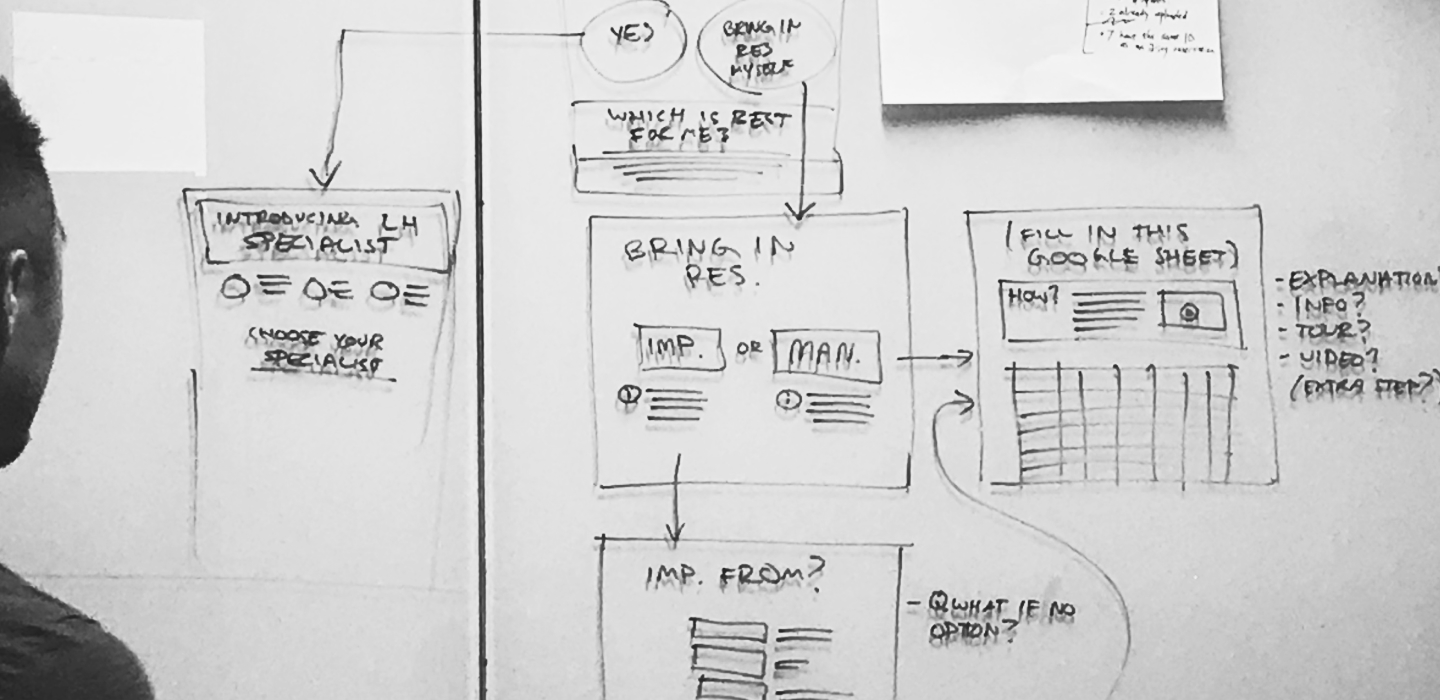 YES
BRING IN
RES
MYSELF
WHICH IS BEST
FOR ME?
2 already uploaded
7 have the same ID
INTRODUCING LH
SPECIALIST
CHOOSE YOUR
SPECIALIST
BRING IN
RES.
IMP. OR MAN.
(FILL IN THIS
GOOGLE SHEET)
HOW?
- EXPLANATION?
- INFO?
- TOUR?
- VIDEO?
(EXTRA STEP?)
IMP. FROM?
- Q WHAT IF NO
OPTION?